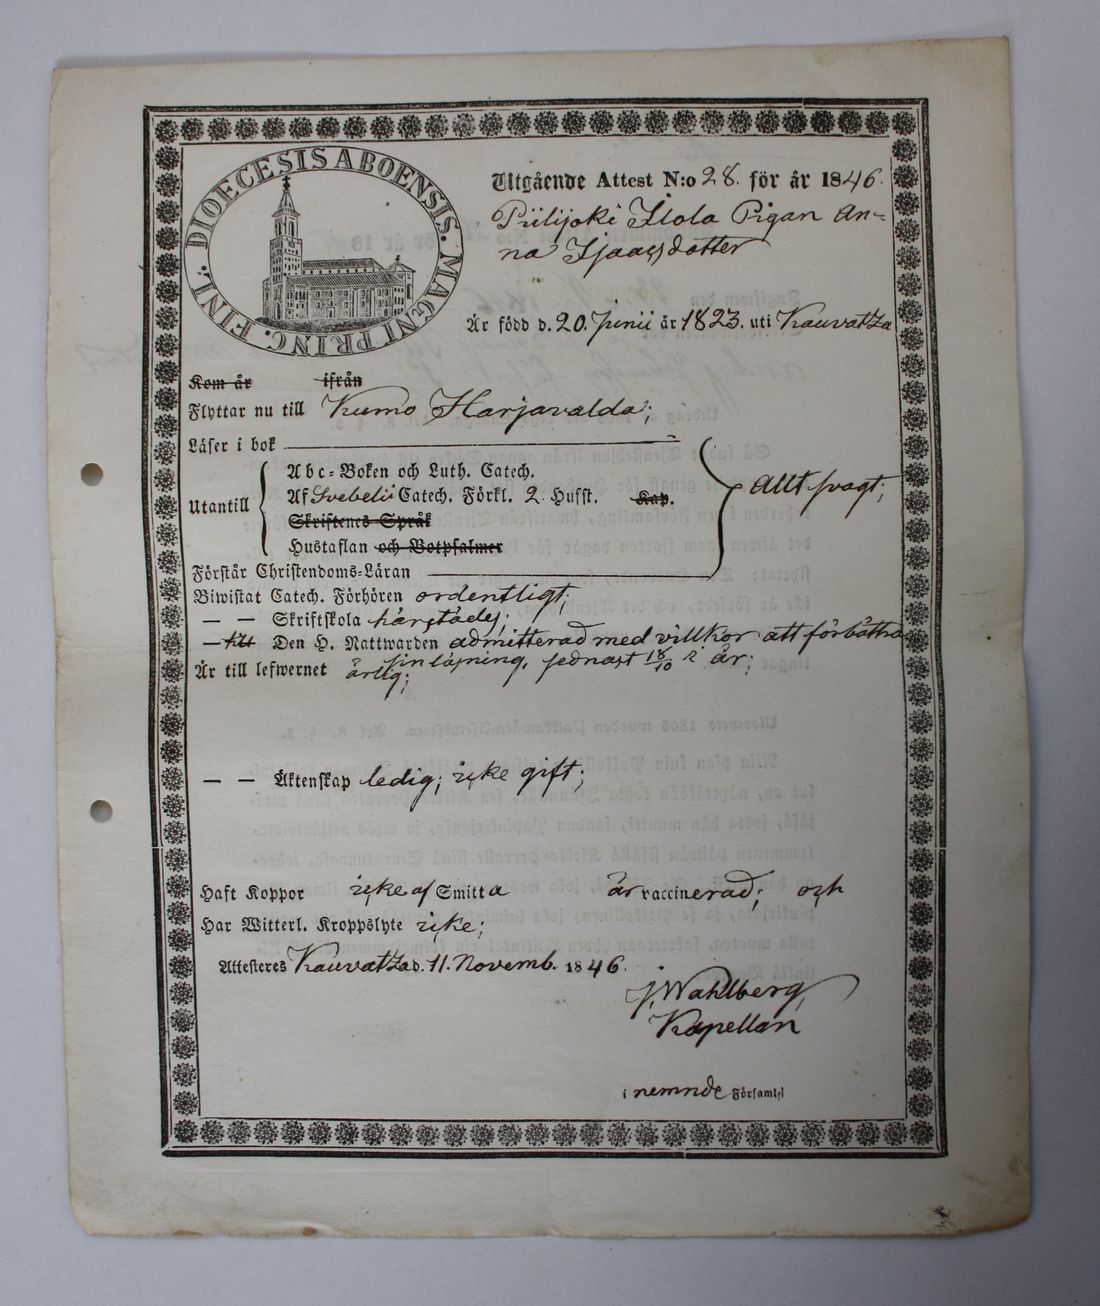 DIOECESIS ABOENSIS. MAGNI PRINC. FINL:
Utgående Attest N:o 28. för år 1846.
Piilijoki Ilola Pigan An-
na Isaacsdotter
Är född d. 20. Junii år 1823. uti Kauvatza
Kom år ifrån
Flyttar nu till Kumo Harjavalda;
Läser i bok
Utantill
Abc-Boken och Luth. Catech.
Af Svebelii Catech. Förkl. 2 Hufst. Kap.
Skriftenes Språk
Hustaflan och Botpsalmer
Allt svagt;
Förstår Christendoms-Läran
Biwistat Catech. Förhören ordentligt;
— — Skriftskola härstädes;
— till Den H. Nattwarden admitterad med villkor att förbättra
sin läsning, sednast 18/10 i år;
Är till lefwernet ärlig;
— — Äktenskap ledig; icke gift;
Haft Koppor icke af Smitta är vaccinerad; och
Har Witterl. Kroppslyte icke;
Attesteres Kauvatza d. 11. Novemb. 1846.
J. Wahlberg,
Kapellan
i nemnde Församl